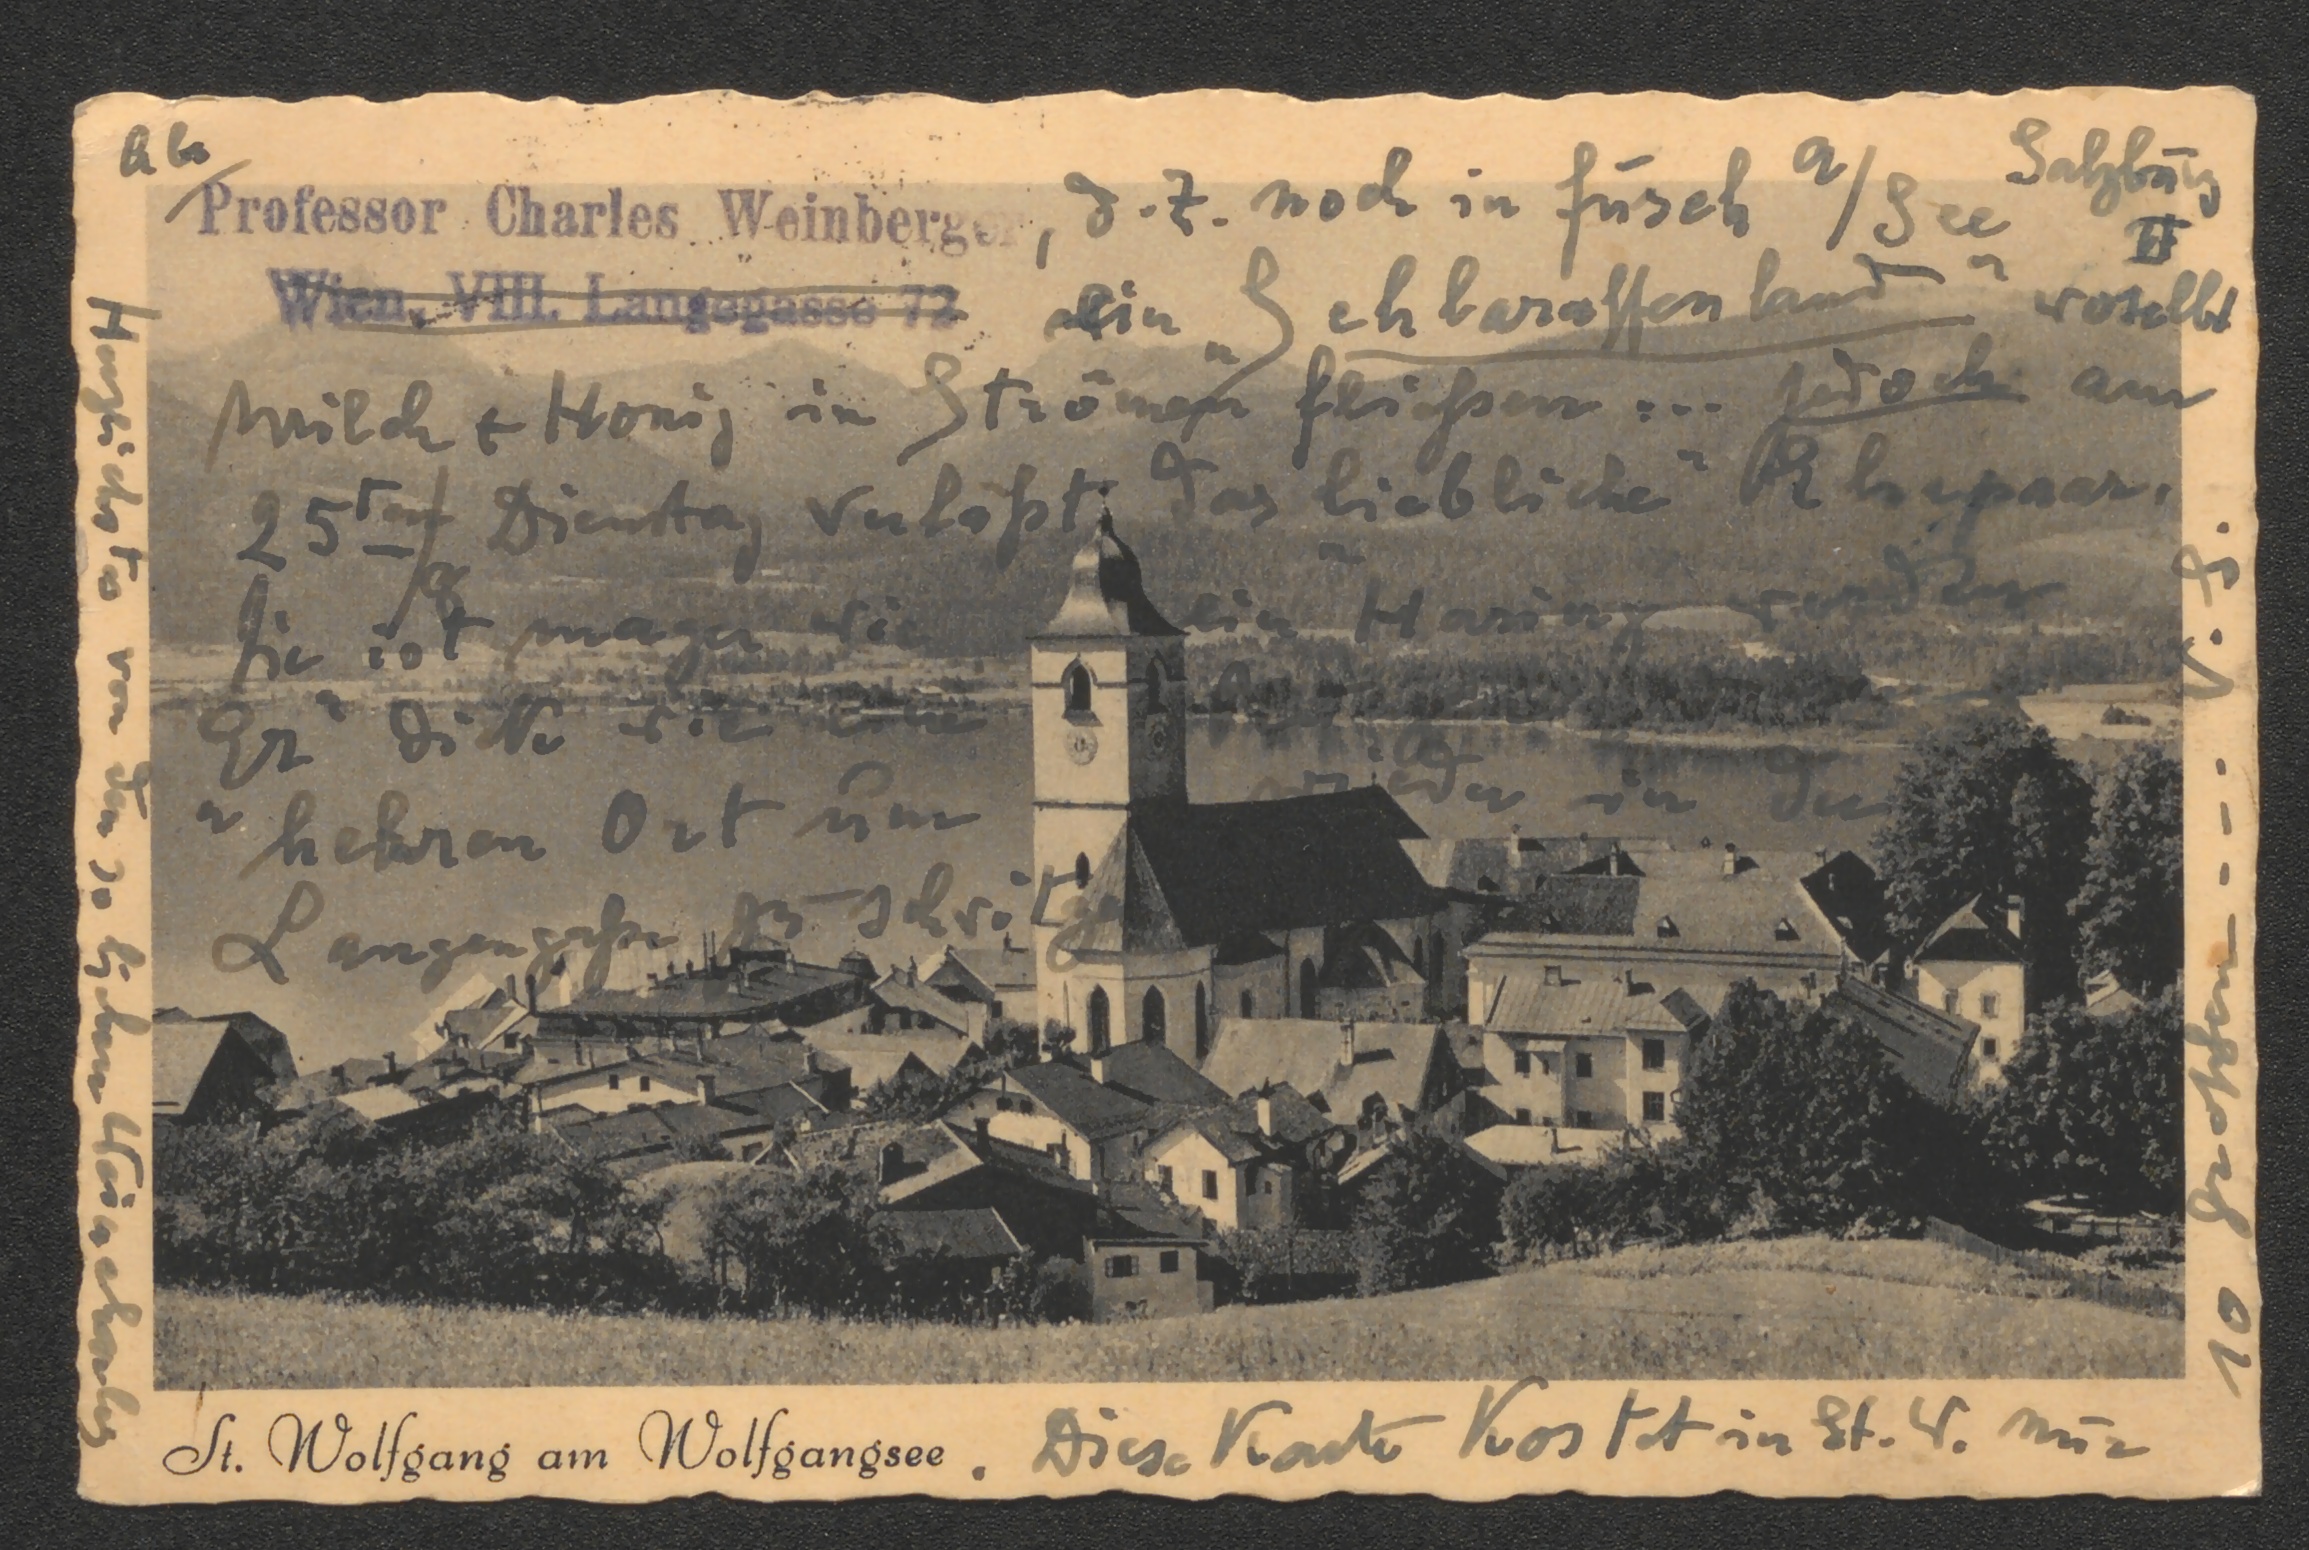 Abs/
Professor Charles Weinberger, d.Z. noch in Fusch a/See Salzburg II
Wien, VIII. Langegasse 72 ein "Schbaraffenland" woselbst
Milch + Honig in "Strömen" fließen ... jedoch am
25ten/8 Dienstag verläßt das "liebliche" Ehepaar.
Sie ist mager wie ein "Häring"
Er dick wie eine
"hehren Ort um wieder in der
Langengaße zu
Herzlichste von den so
St. Wolfgang am Wolfgangsee. Diese Karte kostet in St. W. nur
10 Groschen ----- V. S.